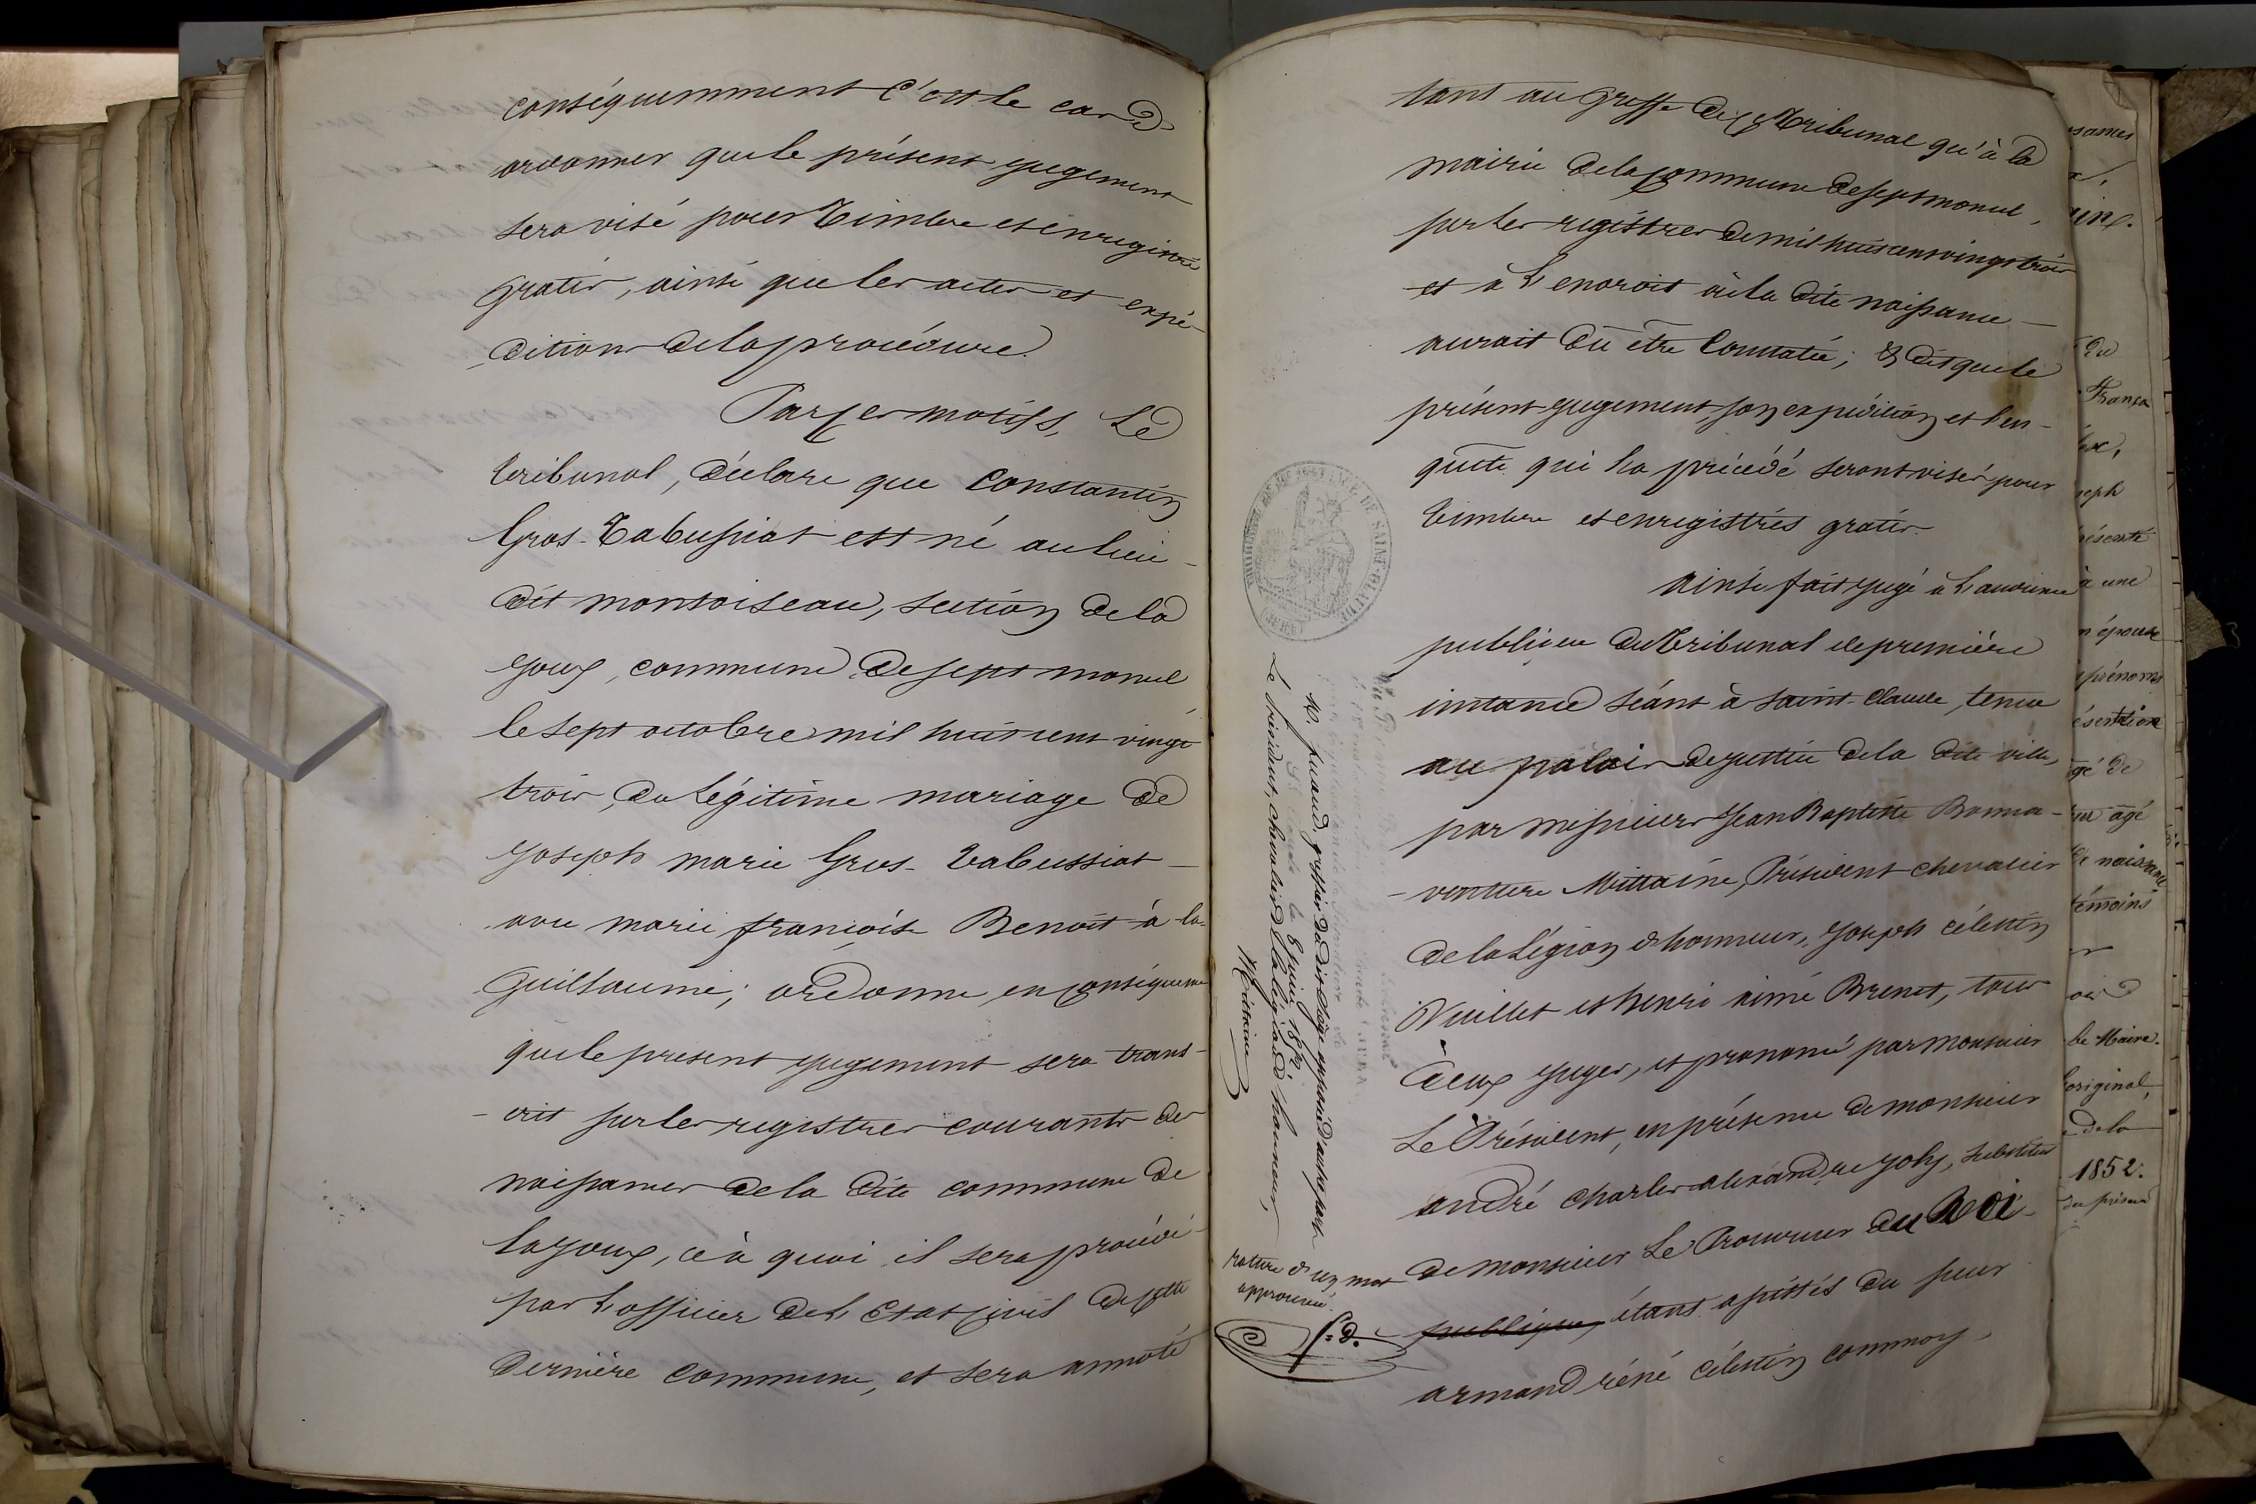 conséquemment c'est le cas d'
ordonner que le présent jugement
sera visé pour timbre et enregistré
gratis, ainsi que les actes et expé-
ditions de la procédure.
Par ces motifs, Le
tribunal, déclare que Constantin
Gros-Tabussiat est né au lieu-
dit montoiseau, section de la
joux, commune de septmoncel
le sept octobre mil huit cent vingt
trois, du légitime mariage de
joseph marie Gros-Tabussiat
avec marie françoise Benoit-à-la-
Guillaume; ordonne en conséquence
que le present jugement sera trans-
-crit sur les registres courants des
naissances de la dite commune de
lajoux, ce à quoi il sera procédé
par l'officier de l'état civil de cette
dernière commune, et sera annoté
tant au Greffe de ce tribunal qu'à la
mairie de la commune de septmoncel,
sur les registres de mil huit cent vingt trois
et à l'endroit où la dite naissance
aurait dû être constatée; & dit que le
présent jugement son expédition et l'en-
quête qui l'a précédé seront visés pour
timbre et enregistrés gratis.
ainsi fait jugé à l'audience
publique du tribunal de première
instance séant à Saint-Claude, tenue
au palais de justice de la dite ville,
par messieurs Jean Baptiste Bonna-
-venture Mittaine, Président chevalier
de la Légion d'honneur, joseph célestin
Vuillet et henri aimé Brenet, tous
deux juges, et prononcé par monsieur
Le Président, en présence de monsieur
andré charles alexandre joly, substitut
de monsieur Le Procureur du Roi
publique, étant assistés du sieur
armand réné célestin commoy
Le Président, chevalier de la légion d'honneur,
Mittaine
rature d'un mot
approuvée.
1852.
le Maire.
l'original,
de la
témoins
de naissance
une
épouse
prénoms
du